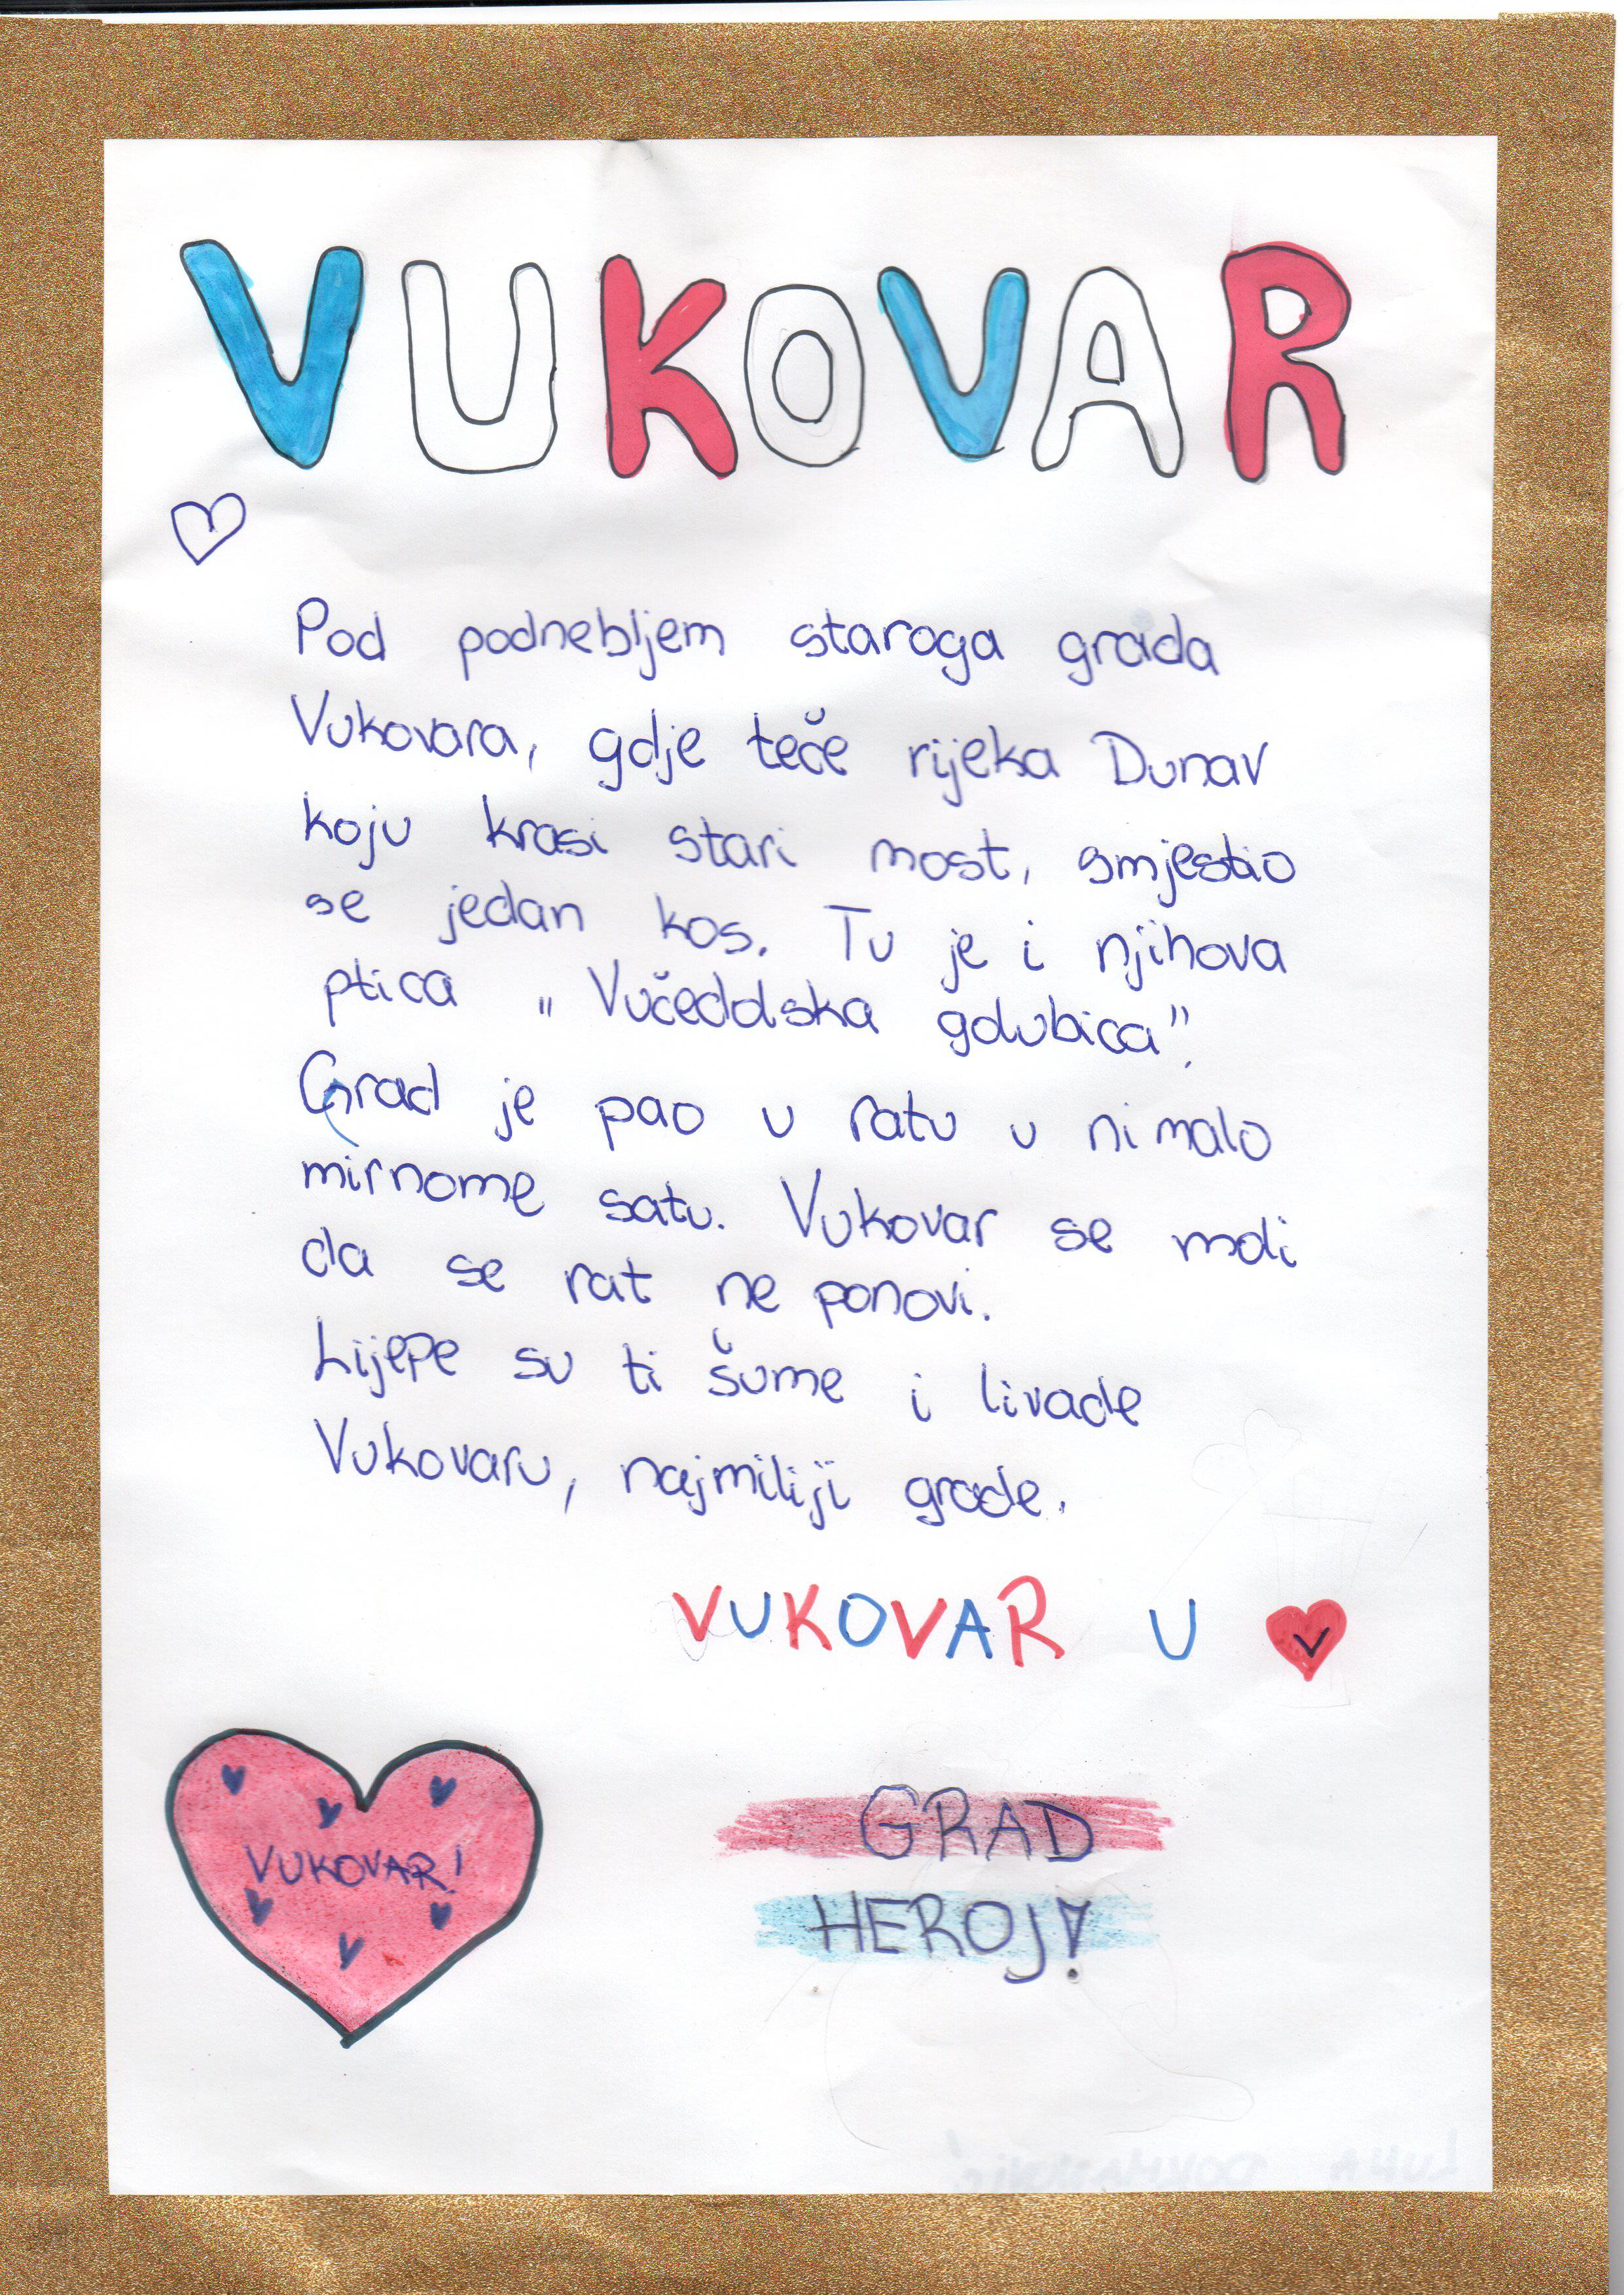 VUKOVAR
Pod podnebljem staroga grada
Vukovara, gdje teče rijeka Dunav
koju krasi stari most, smjestio
se jedan kos. Tu je i njihova
ptica „Vučedolska golubica”.
Grad je pao u ratu u nimalo
mirnome satu. Vukovar se moli
da se rat ne ponovi.
Lijepe su ti šume i livade
Vukovaru, najmiliji grade.
VUKOVAR U V
VUKOVAR!
GRAD
HEROJ!